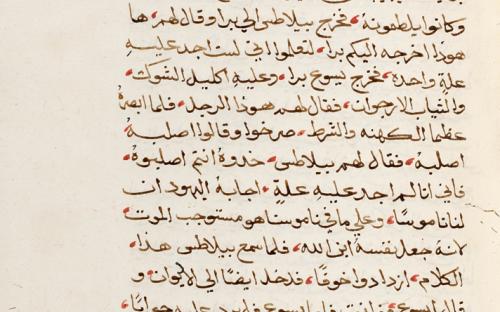 وكانوا يلطمونه، فخرج بيلاطس الي برا وقال لهم، ها
هوذا اخرجه اليكم برا، لتعلموا اني لست اجد عليه
علة واحدة، فخرج يسوع برا، وعليه اكليل الشوك،
والثياب الارجوان، فقال لهم هوذا الرجل، فلما ابصره
عظما الكهنه والشرط، صرخوا وقالوا اصلبه
اصلبه، فقال لهم بيلاطس، خدوه انتم اصلبوه،
فاني انا لم اجد عليه علة، اجابه اليهود ان
لنا ناموسا، وعلي ما في ناموسنا هو مستوجب الموت،
لانه جعل نفسه ابن الله، فلما سمع بيلاطس هذا،
الكلام، ازداد خوفا، فدخل ايضا الي الايوان، و
قال ليسوع، فلم يرد عليه جوابا،